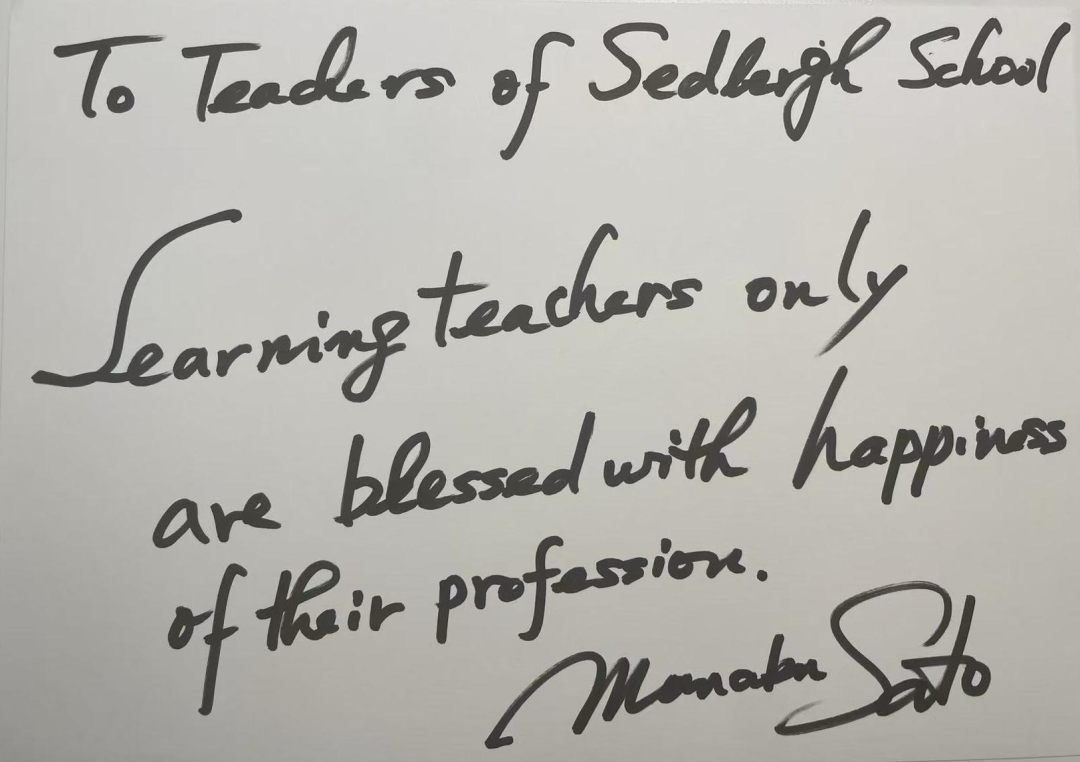 To Teachers of Sedbergh School
Learning teachers only
are blessed with happiness
of their profession.
Manabu Sato